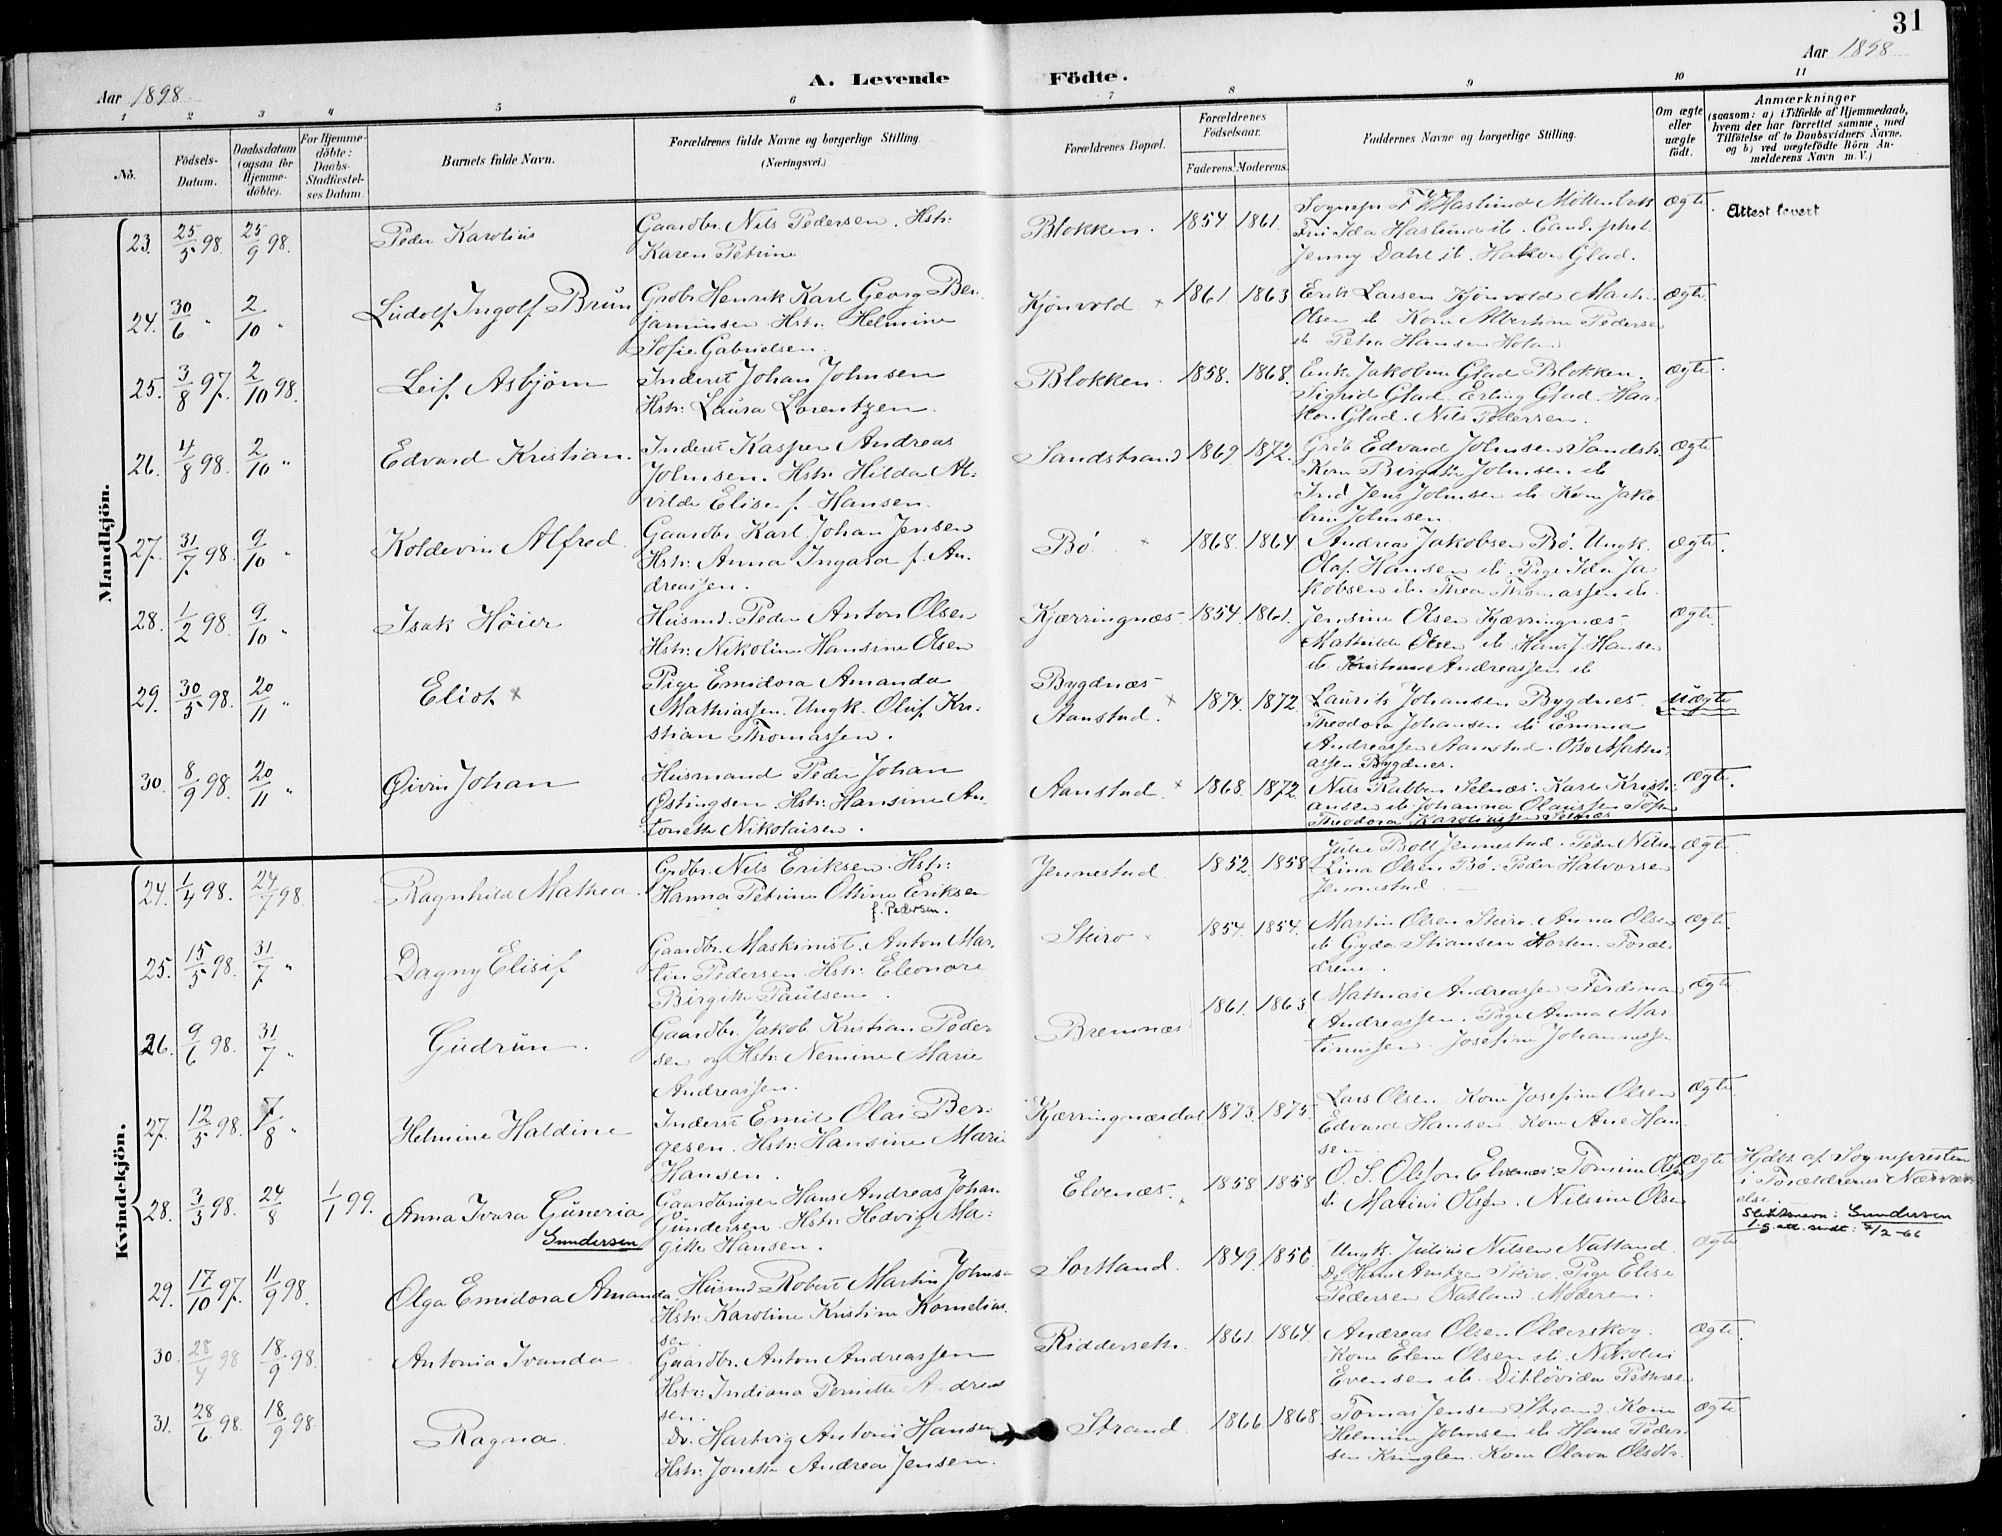 31
Aar 1898
A. Levende Födte.
Aar 1898
1 2 3 4 5 6 7 8 9 10 11
No.
Födsels-Datum.
Daabsdatum (ogsaa for Hjemmedöbte).
For Hjemmedöbte: Daabs-Stadfæstelses Datum.
Barnets fulde Navn.
Forældrenes fulde Navne og borgerlige Stilling. (Næringsvei.)
Forældrenes Bopæl.
Forældrenes Födselsaar.
Faderens. Moderens.
Faddernes Navne og borgerlige Stilling.
Om ægte eller uægte födt.
Anmærkninger
(saasom: a) i Tilfælde af Hjemmedaab, hvem der har forrettet samme, med Tilföielse af to Daabsvidners Navne. og b) ved uægtefödte Börn Anmelderens Navn m. V.)
Mandkjön.
23. 25/5 98. 25/9 98. Peder Karolius
Gaardbr. Nils Pedersen. Hstr:
Karen Petrine
Blokken. 1854 1861.
Sognepr F W Haslund
Fru Ida Haslund ib. Cand. phil.
Jenny Dahl ib. Hakon Glad.
ægte.
Attest levert
24. 30/6 " 2/10 " Ludolf Ingolf Brun
Grobr Henrik Karl Georg Ben
jaminsen Hstr. Helmine
Sofie Gabrielsen.
Kjönvold 1861 1863
Erik Larsen Kjönvold
Olsen ib Kone Albertine Pedersen
ib Petra Hansen
ægte
25. 3/8 97. 2/10 98. Leif Asbjörn
Inderst Johan Johnsen
Hstr: Laura Lorentzen.
Blokken. 1858. 1868.
Enke Jakobine Glad Blokken.
Sigrid Glad Erling Glad. Haa-
kon Glad. Nils Pedersen.
ægte
26. 4/8 98. 2/10 " Edvard Kristian.
Inderst Kasper Andreas
Johnsen. Hstr Hilda Al-
vilde Elise f. Hansen.
Sandstrand 1869 1872.
Grob Edvard Johnsen Sandstr.
Kone Birgitte Johnsen ib
Ind Jens Johnsen ib Kone Jako
bine Johnsen
ægte
27. 31/7 98. 9/10 " Koldevin Alfred
Gaardbr. Karl Johan Jensen
Hstr: Anna Ingara f. An-
dreassen.
Bö. 1868. 1864
Andreas Jakobsen Bö. Ungk.
Olaf Hansen ib. Pige Ida Ja-
kobsen ib. Thea Thomassen ib.
ægte.
28. 1/2 98. 9/10 " Isak Höier
Husmd. Peder Anton Olsen
Hstr: Nikoline Hansine Olsen
Kjærringnæs 1854. 1861.
Jensine Olsen Kjærringnæs
Mathilde Olsen ib Hans J. Hansen
ib Kristian Andreassen ib
ægte.
29. 30/5 98. 20/11 " Eliot x
Pige Emidora Amanda
Mathiassen. Ungk. Oluf Kri-
stian Thomassen.
Bygdnæs
Aanstad. x 1874. 1872
Laurits Johansen Bygdnes.
Theodora Johansen ib Emma
Andreassen Aanstad. Otto Mathi-
assen Bygdnes.
Uægte
30. 8/9 98. 20/11 " Øivin Johan
Husmand Peder Johan
Østingsen Hstr: Hansine An-
tonette Nikolaisen.
Aanstad x 1868. 1872.
Nils Rabben Selnæs. Karl Kristi-
ansen ib Johanna Olaussen
Theodora Karoliussen Selnæs
ægte.
Kvindekjön.
24. 1/4 98. 24/7 98. Ragnhild Mathea.
Grdbr. Nils Eriksen. Hstr:
Hanna Petrine Ottine Eriksen
f. Pedersen.
Jennestad 1852. 1858
Julie Boll Jennestad. Peder Nilsen
Lina Olsen Bö. Peder Halvorsen
Jennestad
ægte
25. 15/5 98. 31/7 " Dagny Elisif
Gaardbr. Maskinist. Anton Mar-
tin Pedersen. Hstr. Eleonore
Birgitte Paulsen.
Steiro 1854. 1854.
Martin Olsen Steiro. Anna Olsen
ib Gyda Stiansen Horten. Foræl-
drene.
ægte.
26. 9/6 98. 31/7 " Gudrun.
Gaardbr. Jakob Kristian Peder-
sen og Hstr. Nemine Marie
Andreassen.
Bremnæs 1861. 1863
Mathias Andreassen Ferdinan
Andreassen. Pige Anna Mar-
tinussen. Josefine Johannessen
ægte
27. 12/5 98. 7/8 " Helmine Haldine
Inderst Emil Olai Ber-
gesen. Hstr. Hansine Marie
Hansen.
Kjærringnæsdal 1873. 1875
Lars Olsen. Kone Josefine Olsen
Edvard Hansen. Kone Ane Han-
sen
ægte
28. 3/3 98. 24/8 1/1 99. Anna Ivara Guneria
Gundersen
Gaardbruger Hans Andreas Johan
Gundersen. Hstr. Hedvig Ma-
gitte Hansen.
Elvenæs. 1858 1858
O. S. Olsson Elvenæs. Tomine Olsen
ib. Marius Olsen. Nilsine Olsen
ægte
Hjdbt. af Sognepresten
i Forældrenes Nærvær
else.
Slektsnavn: Gundersen
2/2-66
29. 17/10 97. 11/9 98. Olga Emidora Amanda
Husmd Robert Martin Johns-
Hstr. Karoline Kristine Kornelius-
sen
Sortland. 1849. 1856.
Ungk. Julius Nilsen Natland.
Do Hans Arntzen Steiro. Pige Elise
Pedersen Natland. Moderen.
ægte
30. 28/4 98 18/9 98. Antonia Ivanda
Gaardbr. Anton Andreassen
Hstr: Indiana Pernitte Andreas
sen.
Riddersetr. 1861. 1864
Andreas Olsen Olderskog.
Kone Elene Olsen ib. Nikolai
Evensen ib. Ditlövida Pettersen
ægte.
31. 28/6 98. 18/9 98. Ragna.
Do. Hartvig Antoni Hansen
Hstr. Jonette Andrea Jensen.
Strand. 1866 1868.
Tomas Jensen Strand. Kone
Helmine Johnsen ib Hans Peder-
sen Kringlen. Kone Olava Olsdtr.
ægte